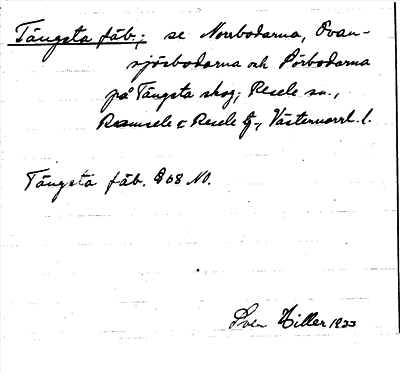 Tängsta fäb.; se Norrbodarna, Ovan-
sjösbodarna och Pörbodarna
på Tängsta skog, Resele sn.,
Ramsele & Resele tg., Västernorrl. l.
Tängsta fäb. 808 NO.
Sven Hiller 1933